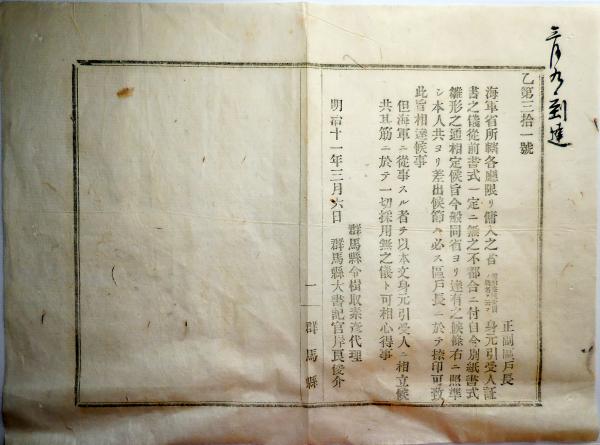 三月九到達
乙第三拾一號
正副區戸長
海軍省所轄各廳限リ傭入之者身元引受人証
書之儀從前書式一定ニ無之不都合ニ付自今別紙書式
雛形之通相定候旨今般同省ヨリ達有之候條右ニ照準
シ本人共ヨリ差出候節ハ必ス區戸長ニ於テ檢印可致
此旨相達候事
但海軍ニ從事スル者ヲ以本文身元引受人ニ相立候
共其筋ニ於テ一切採用無之儀ト可相心得事
明治十一年三月六日
群馬縣令楫取素彥代理
群馬縣大書記官岸良俊介
一
群馬縣